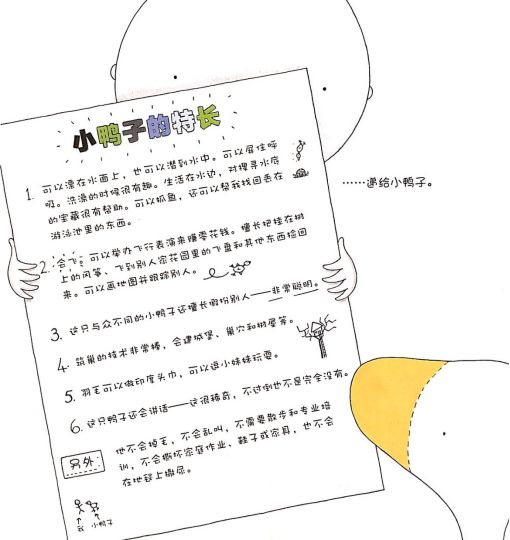 小鸭子的特长
1. 可以漂在水面上，也可以潜到水中。可以屏住呼
吸。洗澡的时候很有趣。生活在水边，对搜寻水底
的宝藏很有帮助。可以抓鱼，还可以帮我找回丢在
游泳池里的东西。
……递给小鸭子。
2. 会飞：可以举办飞行表演来赚零花钱。擅长把挂在树
上的风筝、飞到别人家花园里的飞盘和其他东西捡回
来。可以画地图并跟踪别人。
3. 这只与众不同的小鸭子还擅长假扮别人——非常聪明。
4. 筑巢的技术非常棒，会建城堡、巢穴和树屋等。
5. 羽毛可以做印度头巾，可以逗小妹妹玩耍。
6. 这只鸭子还会讲话——这很稀奇，不过倒也不是完全没有。
另外
他不会掉毛，不会乱叫，不需要散步和专业培
训，不会撕坏家庭作业、鞋子或家具，也不会
在地毯上撒尿。
我 小鸭子